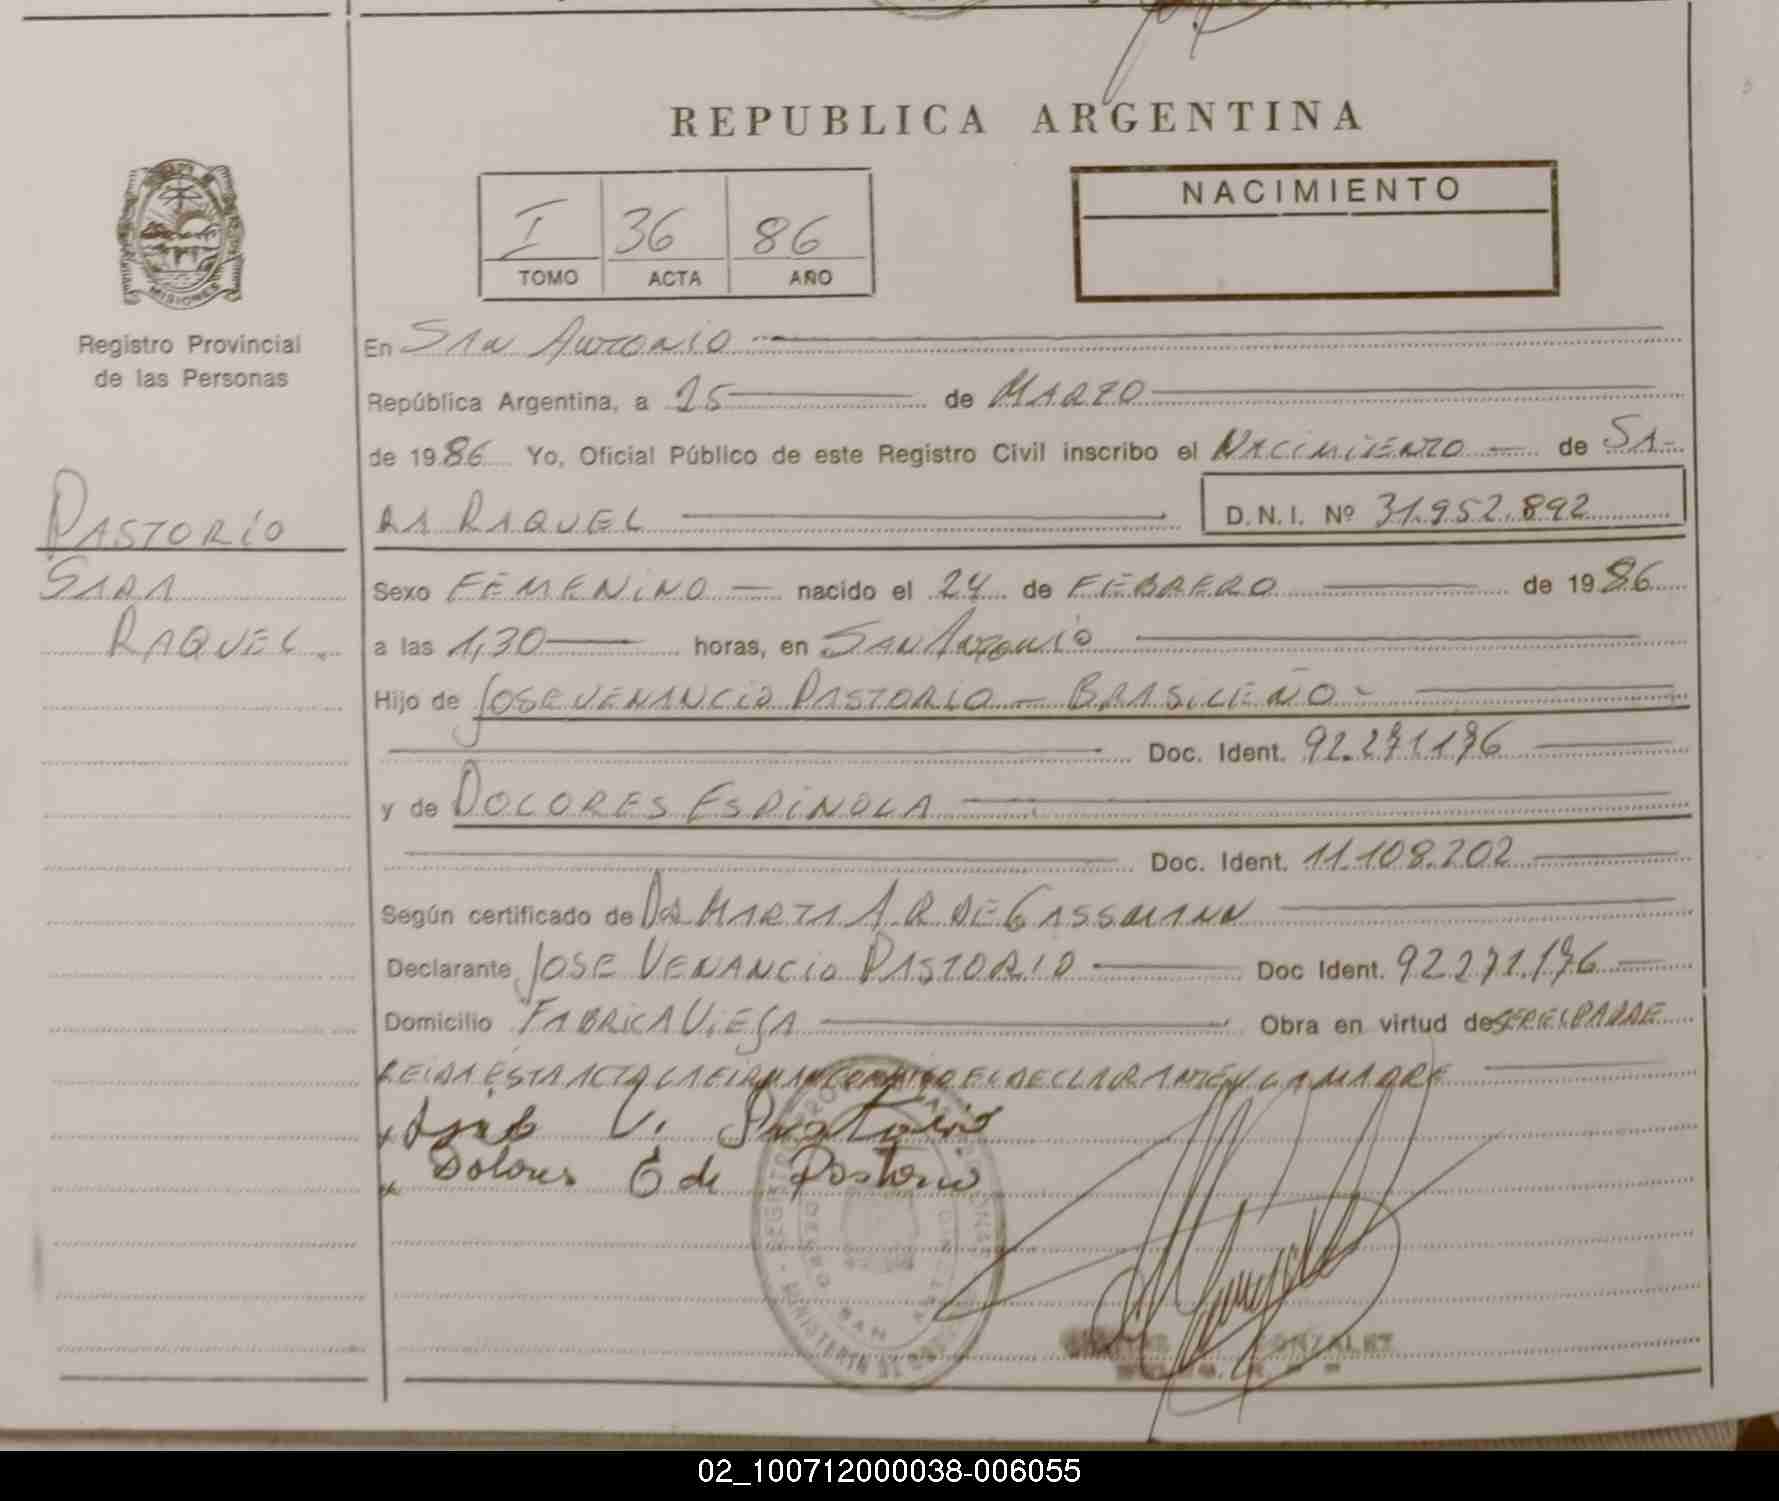 REPUBLICA ARGENTINA
I 36 86
TOMO ACTA AÑO
NACIMIENTO
MISIONES
Registro Provincial
de las Personas
PASTORIO
SARA
RAQUEL.
En SAN ANTONIO
República Argentina, a 25 de MARZO
de 1986 Yo, Oficial Público de este Registro Civil inscribo el NACIMIENTO de SA-
RA RAQUEL D.N.I. Nº 31.952.892
Sexo FEMENINO nacido el 24 de FEBRERO de 1986
a las 1,30 horas, en SAN ANTONIO
Hijo de JOSE VENANCIO PASTORIO - BRASILEÑO -
Doc. Ident. 92.271.176
y de DOLORES ESPINOLA
Doc. Ident. 11.108.202
Según certificado de DRA MARTA A.R. DE GASSMANN
Declarante JOSE VENANCIO PASTORIO Doc Ident. 92.271.176
Domicilio FABRICA VIEJA Obra en virtud de SER EL PADRE
LEIDA ESTA ACTA LA FIRMAN CONMIGO EL DECLARANTE Y LA MADRE
x José V. Pastorio
x Dolores E de Pastorio
GONZALEZ
02_100712000038-006055